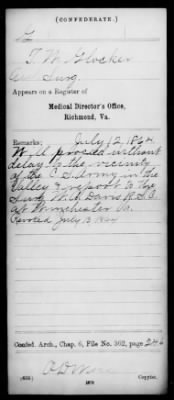 (CONFEDERATE.)
G
T. W. Glocker
Asst Surg.
Appears on a Register of
Medical Director's Office,
Richmond, Va.
Remarks: July 12, 1864
Will proceed without
delay to the vicinity
of the C. S. Army in the
Valley & report to the
Surg. Davis
at Winchester Va.
July 13, 1864
Confed. Arch., Chap. 6, File No. 362, page 246
(635)
Copyist.